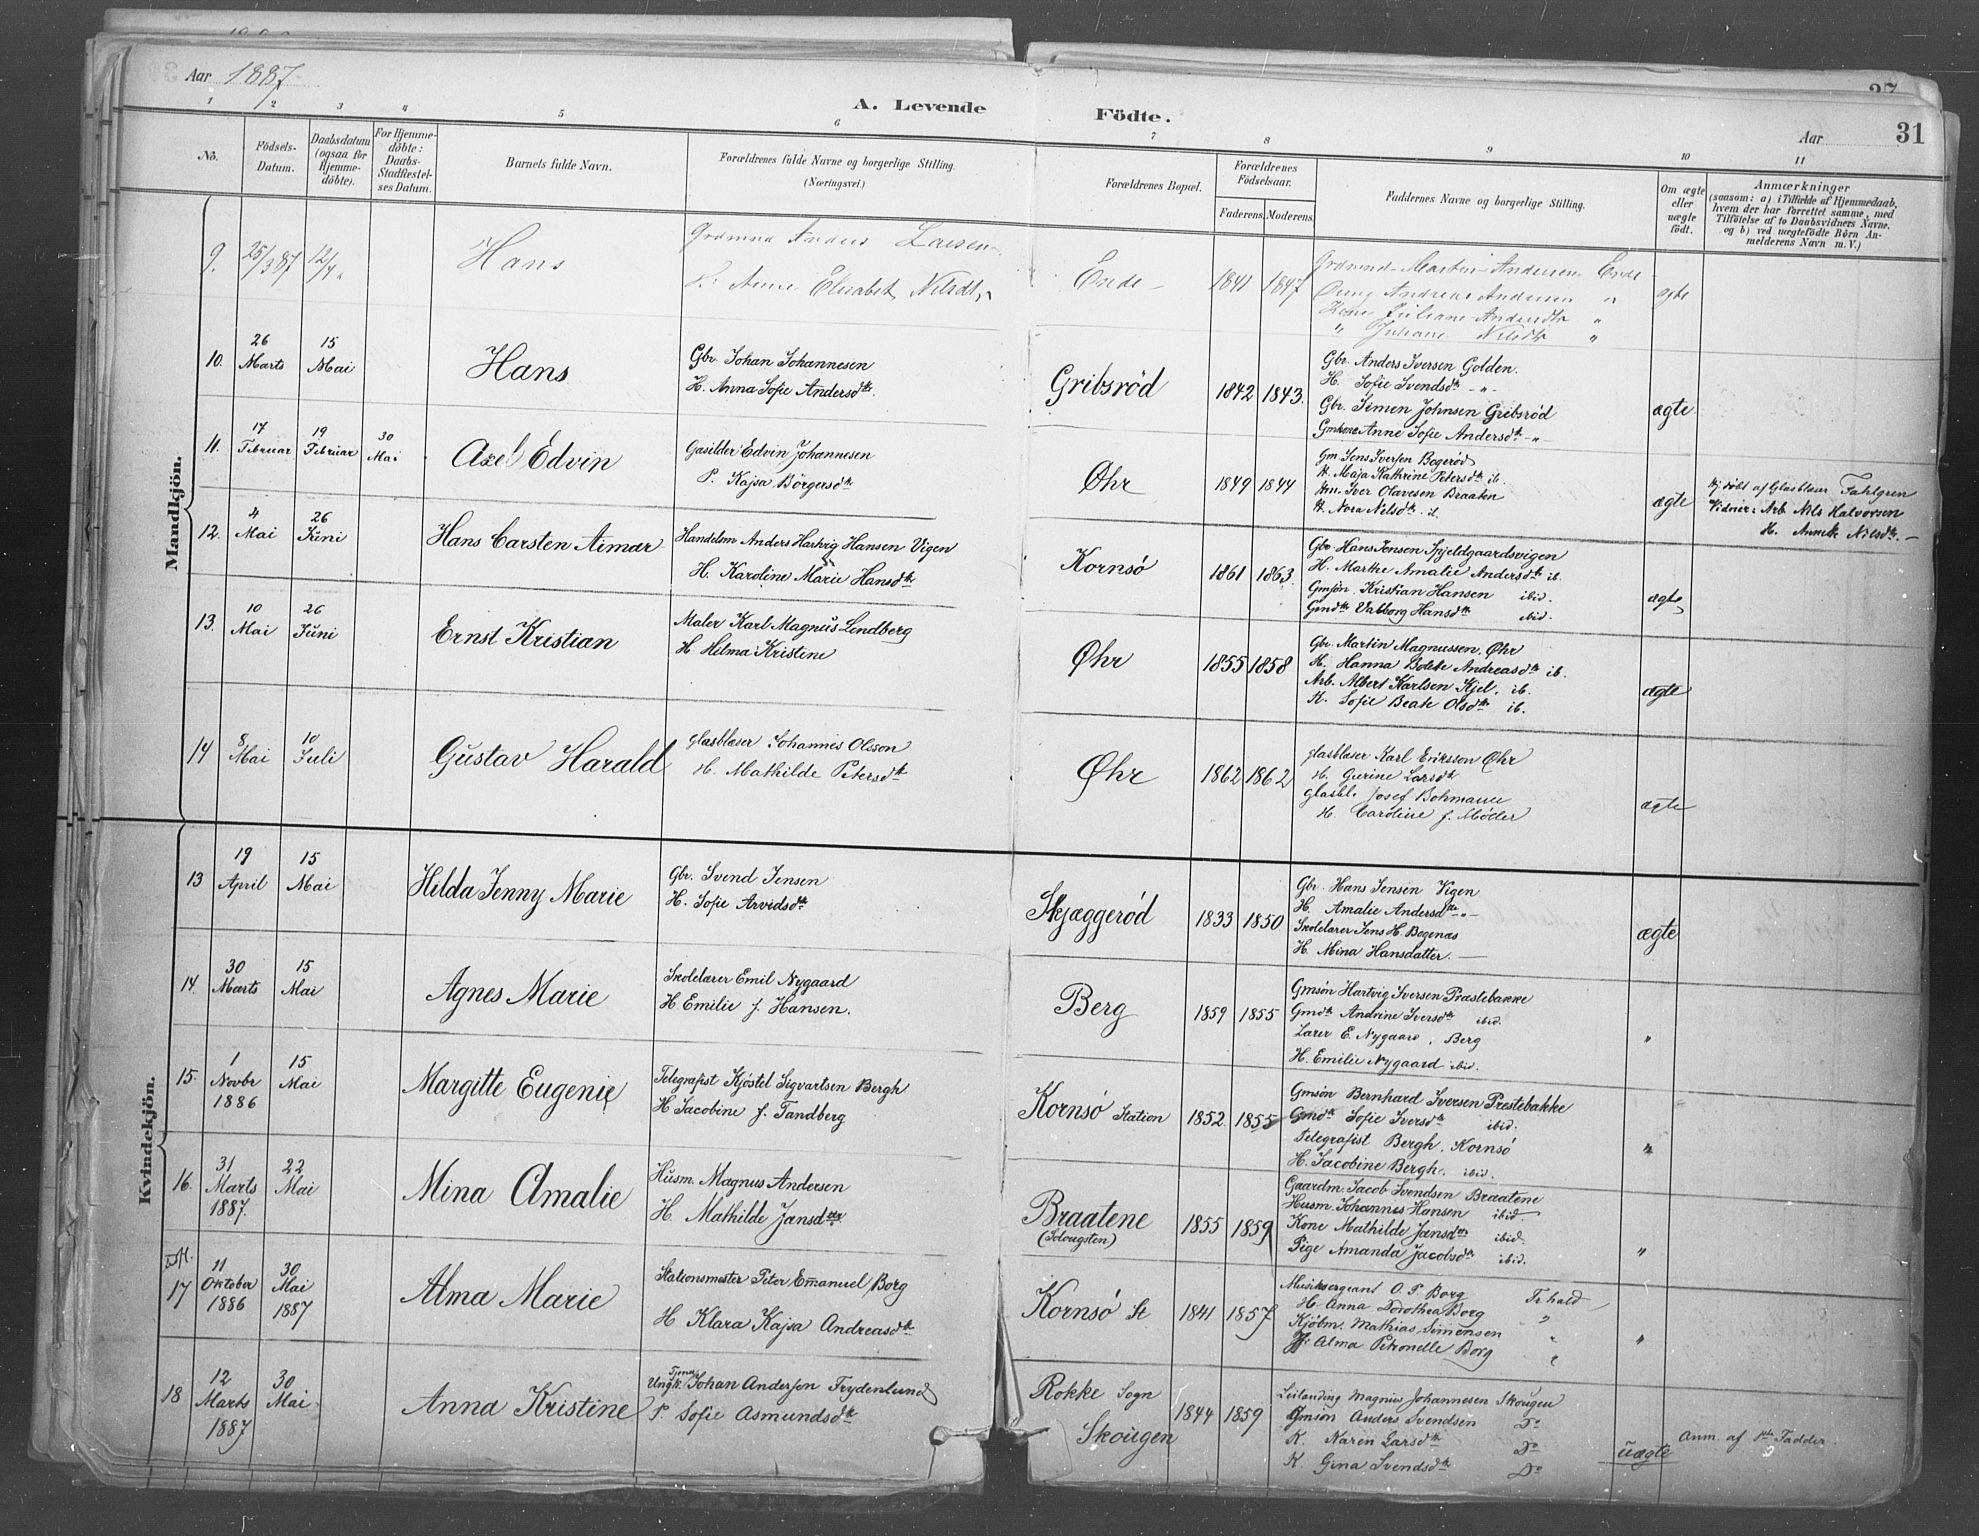 Aar 1887
A. Levende Födte.
Aar 31
1 2 3 4 5 6 7 8 9 10 11
No.
Födsels-Datum.
Daabsdatum (ogsaa for Hjemme-döbte).
For Hjemme-döbte: Daabs-Stadfæstel-ses Datum.
Barnets fulde Navn.
Forældrenes fulde Navne og borgerlige Stilling. (Næringsvei.)
Forældrenes Bopæl.
Forældrenes Födselsaar.
Faderens. Moderens.
Faddernes Navne og borgerlige Stilling.
Om ægte eller uægte födt.
Anmærkninger (saasom: a) i Tilfælde af Hjemmedaab, hvem der har forrettet samme, med Tilföielse af to Daabsvidners Navne. og b) ved uægtefödte Börn Anmelderens Navn m. V.)
Mandkjön.
9. 25/3 87 12/4 Hans
Grdmnd Anders Larsen
Anne Elisabet Nilsdt.
Ende 1841 1847
Grdmnd Martin Andersen Ende
Andreas Andersen "
Juliane Andersdtr "
" Juliane Nilsdtr "
ægte
10. 26 Marts 15 Mai Hans
Gbr. Johan Johannesen
H. Anna Sofie Andersdtr.
Gribsröd 1842 1843.
Gbr. Anders Iversen Golden.
H. Sofie Svendsdtr - " -
Gbr. Simen Johnsen Gribsröd
Gmkone Anne Sofie Andersdtr - " -
ægte
11. 17 Februar 19 Februar 30 Mai Axel Edvin
Edvin Johannesen
P. Kajsa Börgersdtr
Øhr 1849 1844
Gm Jens Iversen Bogeröd
H. Maja Kathrine Petersdtr ib.
Hm. Iver Olavesen Braaten
H. Nora Nilsdtr ib.
ægte
Hj.döbt af Glasblæser Fahlgren
Vidner: Arb. Nils Halvorsen
H. Annik Nilsdtr. -
12. 4 Mai 26 Juni Hans Carsten Aimar
Handelsm Anders Hartvig Hansen Vigen
H. Karoline Marie Hansdtr
Kornsö 1861 1863.
Gbr Hans Jensen Spjeldgaardsvigen
H. Marthe Amalie Andersdtr ib.
Gmsön. Kristian Hansen ibid.
Gmdtr Valborg Hansdtr ibid.
ægte
13. 10 Mai 26 Juni Ernst Kristian
Maler Karl Magnus Lendberg
H Hilma Kristine
Øhr 1855 1858
Gbr. Martin Magnussen. Øhr
H. Hanna Bolete Andreasdtr ib.
Arb. Albert Karlsen Kjel. ib.
K. Sofie Beate Olsdtr ib.
ægte
14 8 Mai 10 Juli Gustav Harald
glasblæser Johannes Olsson
H. Mathilde Petersdtr
Øhr 1862 1862
glasblæser Karl Eriksson Øhr
H. Gurine Larsdtr
glasbl. Josef Bohmann
H. Caroline f. Möller
ægte
Kvindekjön.
13 19 April 15 Mai Hilda Jenny Marie
Gbr. Svend Jensen
H. Sofie Arvidsdtr
Skjæggeröd 1833 1850
Gbr. Hans Jensen Vigen
H. Amalie Andersdtr - " -
Skolelærer Jens H. Begenæs
H. Mina Hansdatter. —
ægte
14. 30 Marts 15 Mai Agnes Marie
Skolelærer Emil Nygaard
H Emilie f. Hansen.
Berg 1859 1855
Gmsön Hartvig Iversen Præstebakke
Gmdtr Andrine Iversdtr ibid.
Lærer E. Nygaard. Berg
H. Emilie Nygaard ibid.
"
15. 1 Novbr 1886 15 Mai Margitte Eugenie
Telegrafist Kjöstel Sigvartsen Bergh
H Jacobine f. Tandberg
Kornsö Station 1852. 1855
Gmsön Bernhard Iversen Prestebakke
Gmdtr Sofie Iversdtr ibid.
Telegrafist Bergh. Kornsö
H. Jacobine Bergh. ibid.
"
16. 31 Marts 1887. 22 Mai Mina Amalie
Husm. Magnus Andersen
H. Mathilde Jansdtr
Braatene 1855 1859
Gaardm. Jacob Svendsen Braatene
Husm. Johannes Hansen ibid.
Kone Mathilde Jansdtr ibid.
Pige Amanda Jacobsdtr ibid.
"
17 11 Oktober 1886 30 Mai 1887 Alma Marie
Stationsmester Peter Emanuel Borg
H Klara Kajsa Andreasdtr
Kornsö St 1841 1857
Musiksergeant O. P. Borg Fr.hald
H. Anna Dorothea Borg "
Kjöbm. Mathias Simensen "
Alma Petronelle Borg "
"
18 12 Marts 1887 30 Mai Anna Kristine
Ungk. Tjener Johan Andersen Frydenlund
P. Sofie Asmundsdtr
Rokke Sogn
Skougen 1844 1859
Leilænding Magnus Johannesen Skougen
Gmsön Anders Svendsen Do
K. Karen Larsdtr Do
K. Gina Svendsdtr Do
uægte
Anm. af 1ste Fadder.